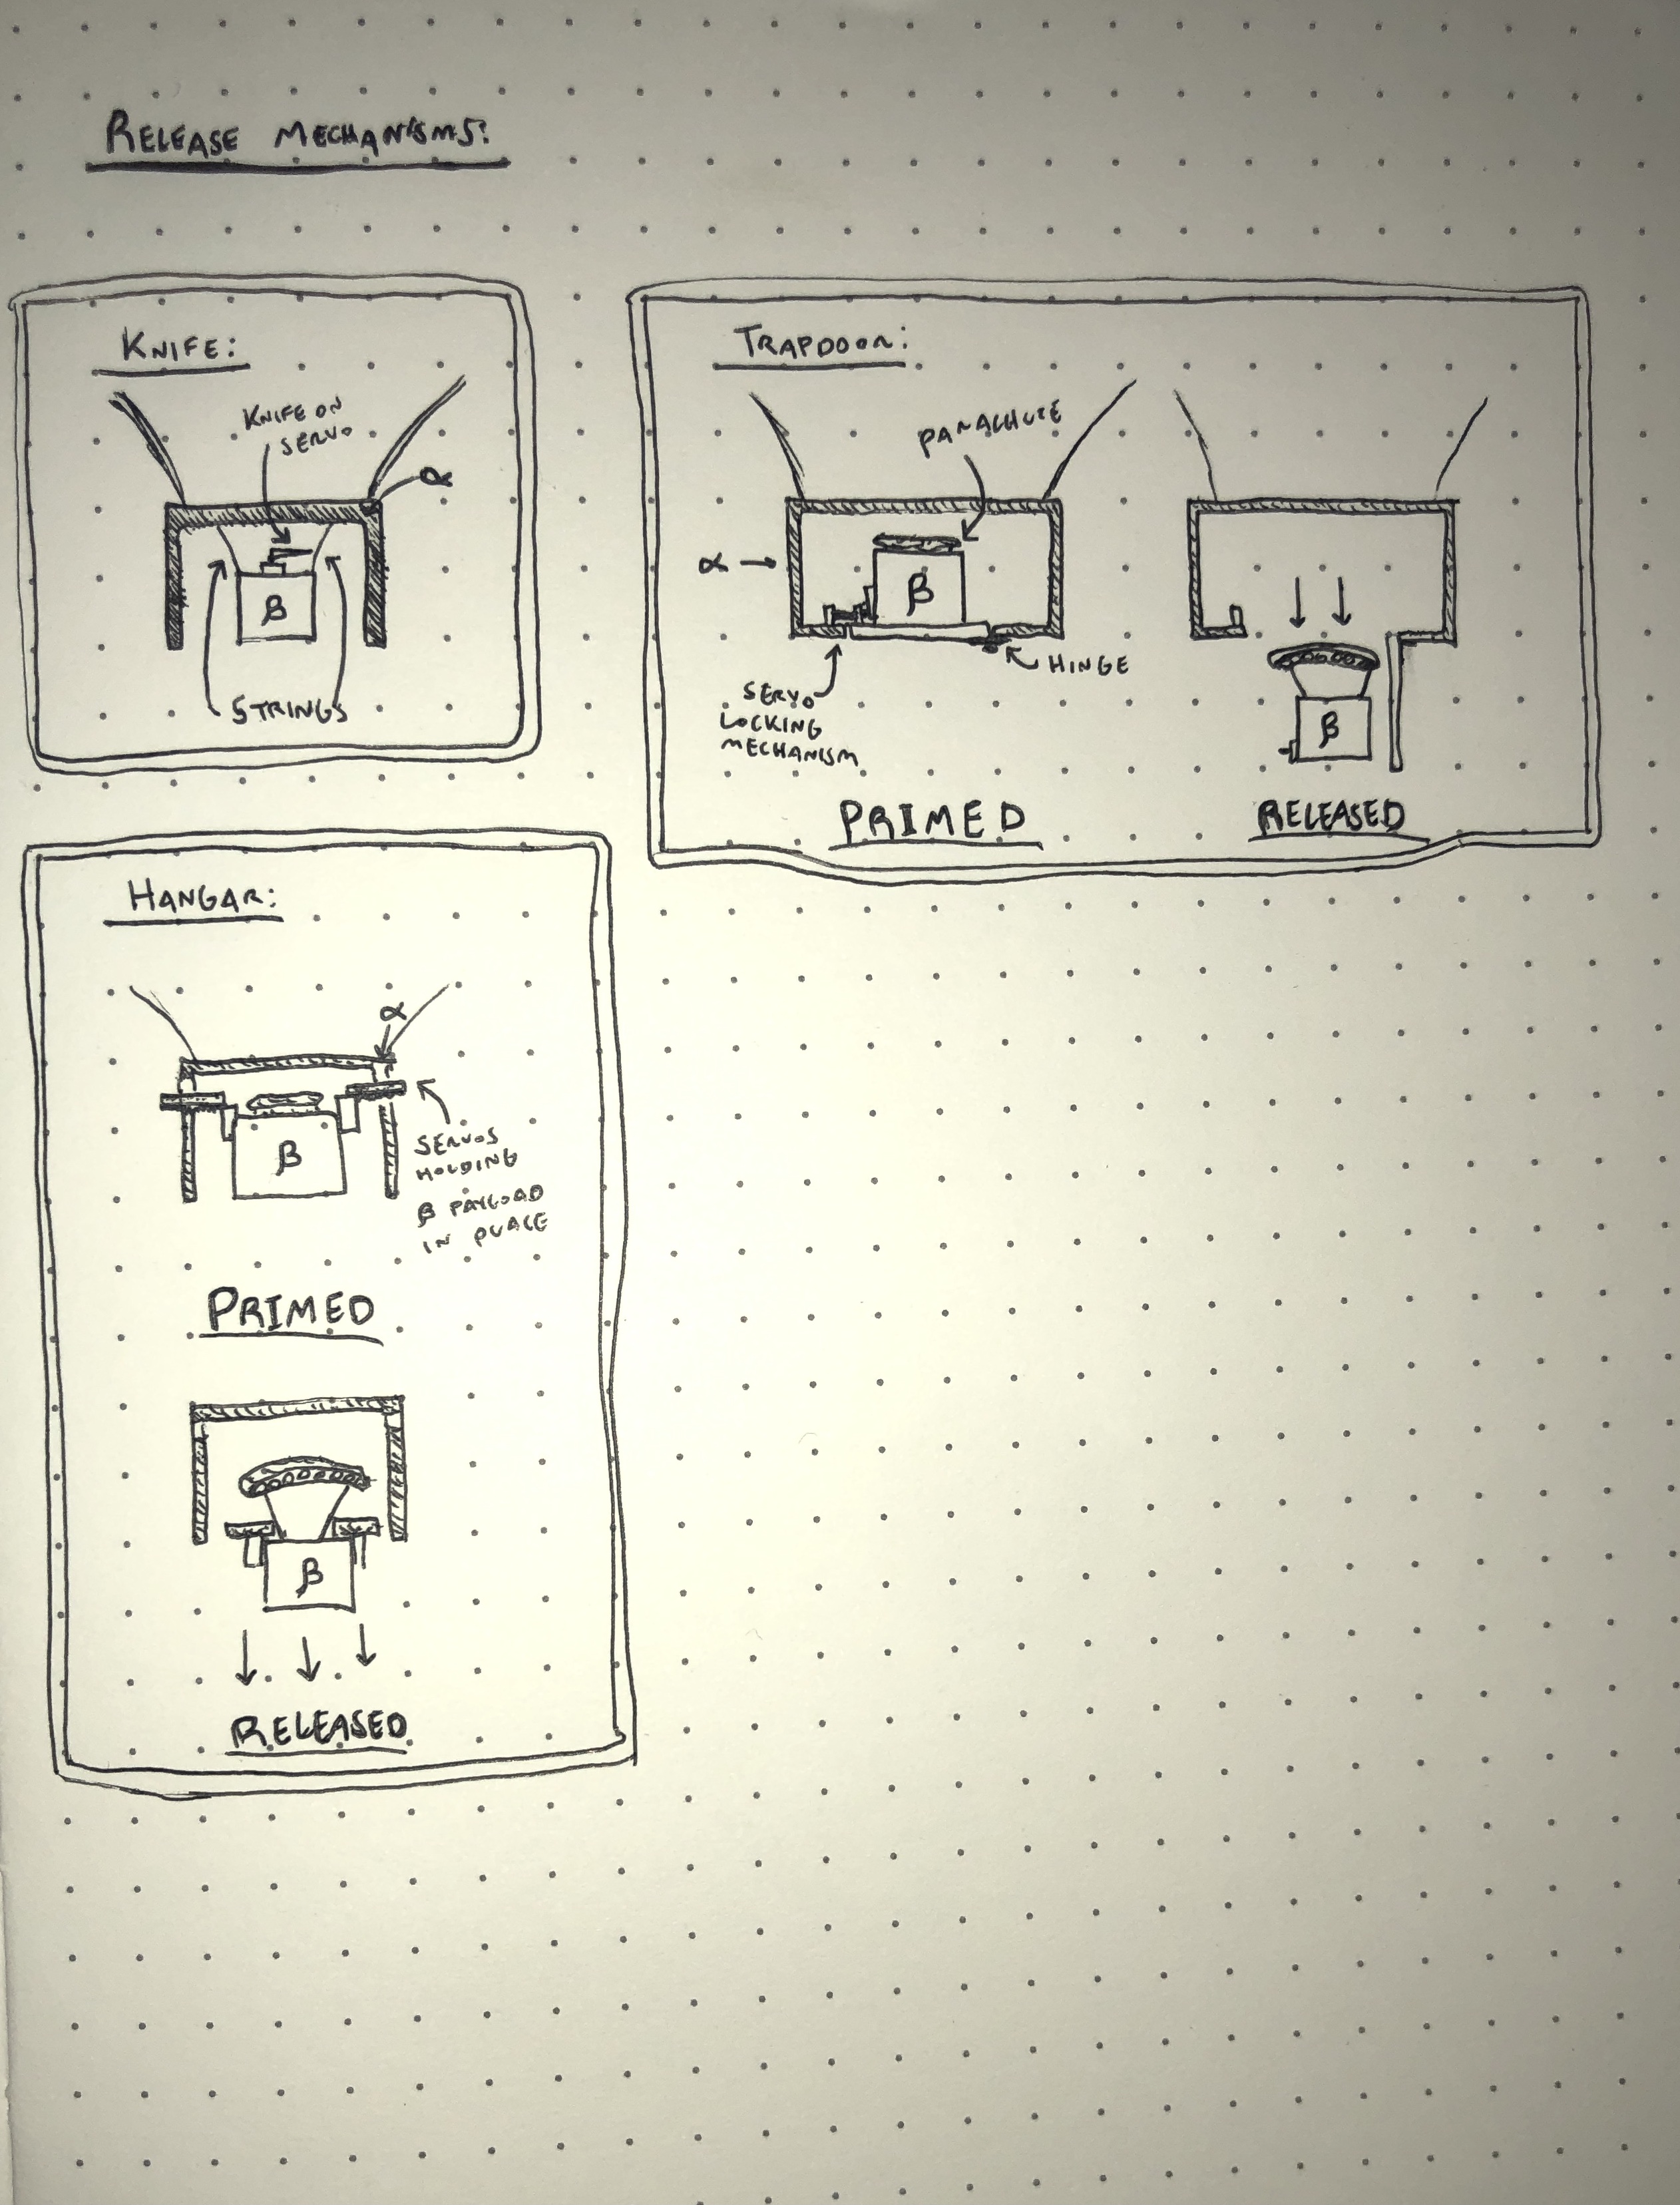 RELEASE MECHANISMS:
KNIFE:
KNIFE ON
SERVO
α
β
STRINGS
TRAPDOOR:
PARACHUTE
α
β
HINGE
SERVO
LOCKING
MECHANISM
PRIMED
β
RELEASED
HANGAR:
α
β
SERVOS
HOLDING
β PAYLOAD
IN PLACE
PRIMED
β
RELEASED